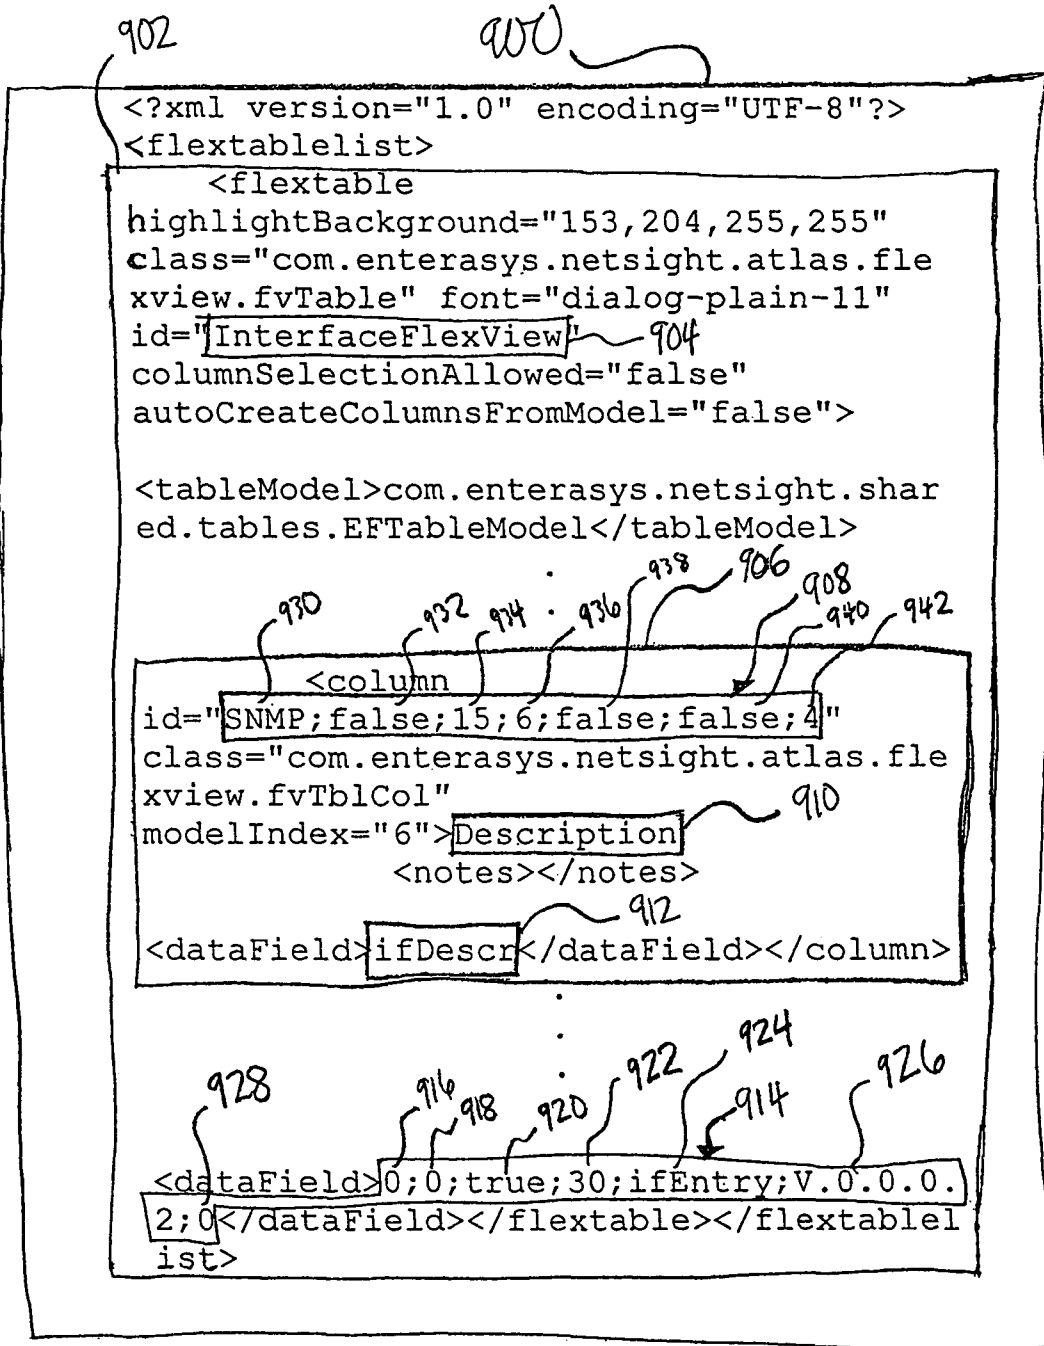 902 900
<?xml version="1.0" encoding="UTF-8"?>
<flextablelist>
<flextable
highlightBackground="153,204,255,255"
class="com.enterasys.netsight.atlas.fle
xview.fvTable" font="dialog-plain-11"
id="InterfaceFlexView" 904
columnSelectionAllowed="false"
autoCreateColumnsFromModel="false">
<tableModel>com.enterasys.netsight.shar
ed.tables.EFTableModel</tableModel>
930 932 934 936 938 906 908 940 942
<column
id="SNMP;false;15;6;false;false;4"
class="com.enterasys.netsight.atlas.fle
xview.fvTblCol"
910
modelIndex="6">Description
<notes></notes>
912
<dataField>ifDescr</dataField></column>
928 916 918 920 922 924 914 926
<dataField>0;0;true;30;ifEntry;V.0.0.0.
2;0</dataField></flextable></flextablel
ist>